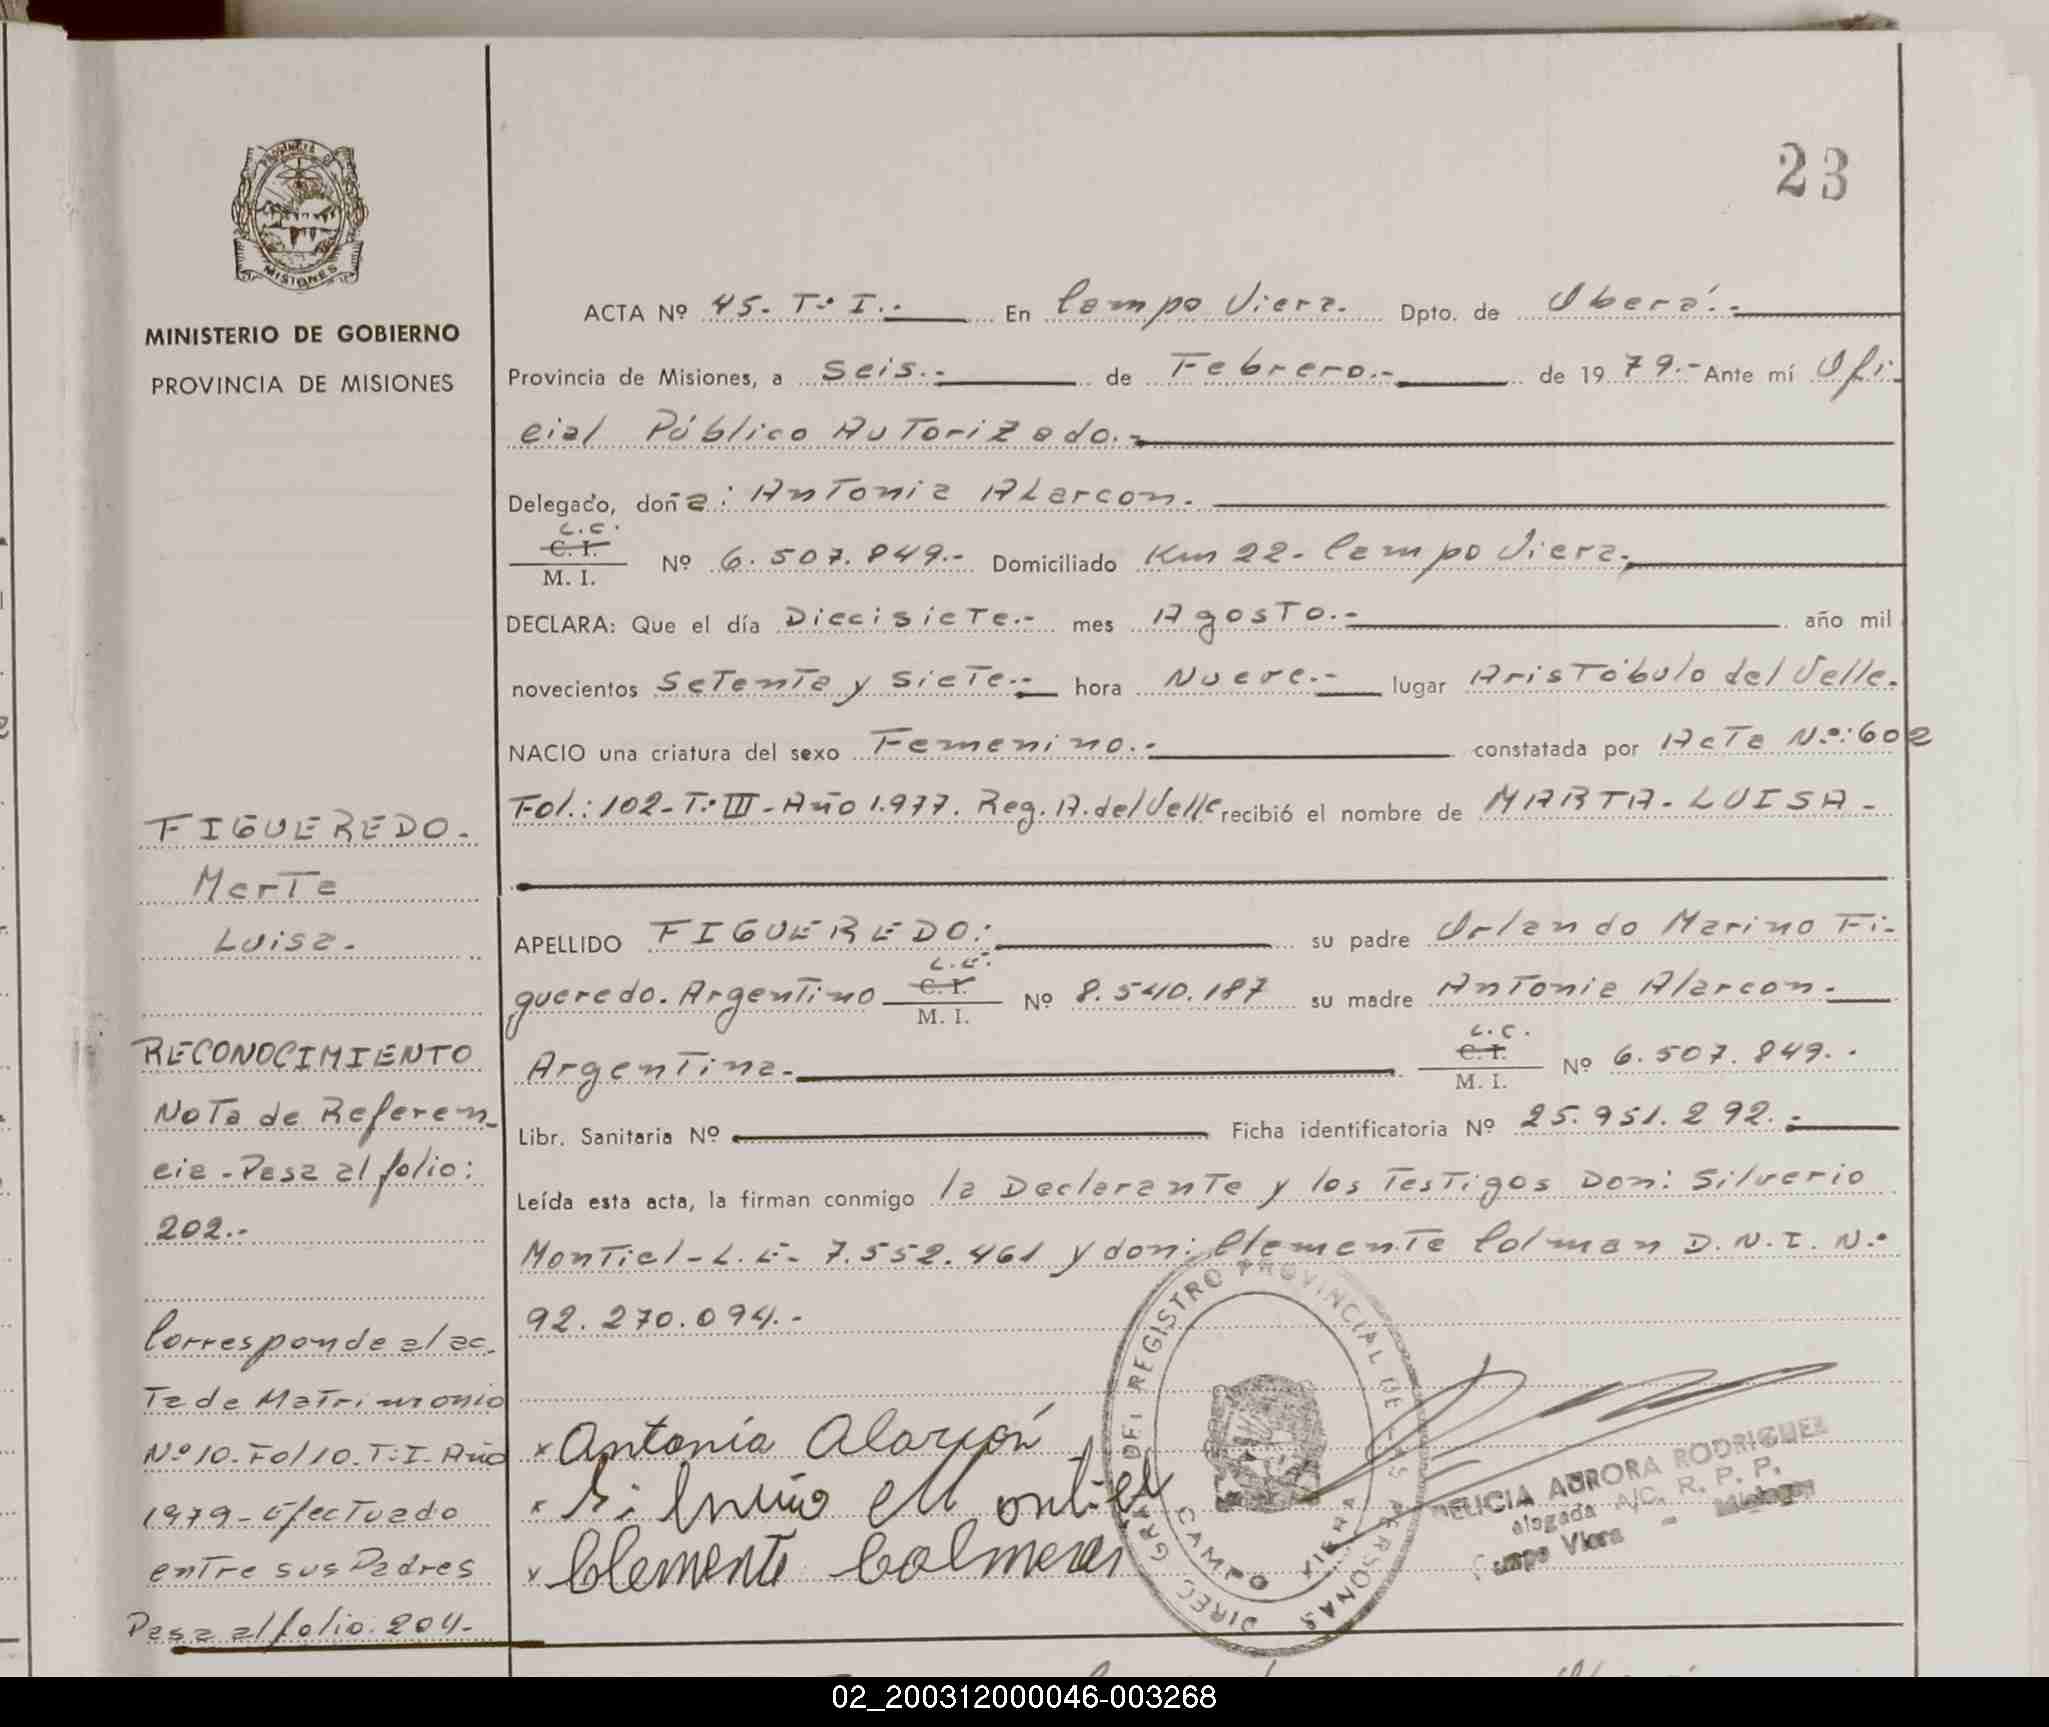 23
PROVINCIA DE
MISIONES
MINISTERIO DE GOBIERNO
PROVINCIA DE MISIONES
FIGUEREDO.
Marta
Luisa.
RECONOCIMIENTO
Nota de Referen-
cia - Pasa al folio:
202.-
Corresponde al ac-
ta de Matrimonio
Nº 10. Fol 10. T:I. Año
1979 - Efectuado
entre sus Padres
Pasa al folio: 204.-
ACTA Nº 45. Tº I.- En Campo Viera. Dpto. de Oberá.-
Provincia de Misiones, a seis.- de Febrero.- de 1979.- Ante mí Ofi-
cial Público Autorizado.-
Delegado, doña: Antonia Alarcon.
L.C.
C. I.
M. I. Nº 6.507.849.- Domiciliado Km 22- Campo Viera.
DECLARA: Que el día Diecisiete.- mes Agosto.- año mil
novecientos Setenta y siete.- hora Nueve.- lugar Aristóbulo del Valle.
NACIO una criatura del sexo Femenino.- constatada por Acta Nº:602
Fol.: 102- Tº III - Año 1.977. Reg. A. del Valle recibió el nombre de MARTA - LUISA -
APELLIDO FIGUEREDO: su padre Orlando Marino Fi-
L.E.
gueredo. Argentino C. I. M. I. Nº 8.540.187 su madre Antonia Alarcon.
L.C.
Argentina. C. I. M. I. Nº 6.507.849.-
Libr. Sanitaria Nº Ficha identificatoria Nº 25.951.292.-
Leída esta acta, la firman conmigo la Declarante y los Testigos Don: Silverio
Montiel - L.E- 7.552.461 y don: Clemente Colman D.N.I. Nº
92.270.094.-
x Antonia Alarcón
x Silverio Montiel
x Clemente Colman
DIREC. GRAL. DEL REGISTRO PROVINCIAL DE LAS PERSONAS
CAMPO VIERA
DELICIA AURORA RODRIGUEZ
Delegada A/C. R. P. P.
Campo Viera - Misiones
02_200312000046-003268